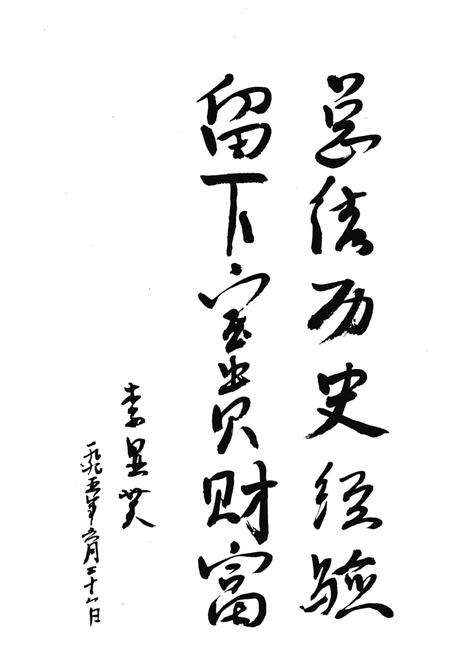 总结历史经验
留下宝贵财富
李
一九九五年六月二十日